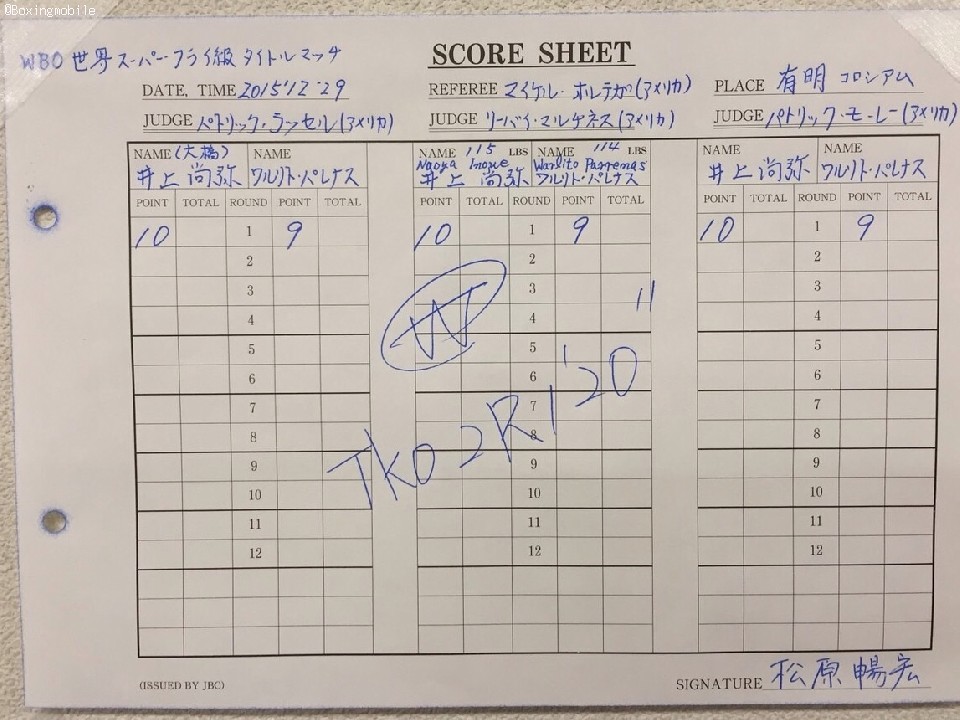 @Boxingmobile
WBO 世界スーパーフライ級タイトルマッチ
SCORE SHEET
DATE, TIME 2015 12 29
REFEREE マイケル・ホルテガ(アメリカ)
PLACE 有明コロシアム
JUDGE パトリック・ラッセル(アメリカ)
JUDGE リーバイ・マルチネス(アメリカ)
JUDGE パトリック・モーレー(アメリカ)
NAME (大橋) NAME
井上尚弥 ワルリト・パレナス
NAME 115 LBS NAME 114 LBS
Naoya Inoue Warlito Parrenas
井上尚弥 ワルリト・パレナス
NAME NAME
井上尚弥 ワルリト・パレナス
POINT TOTAL ROUND POINT TOTAL POINT TOTAL ROUND POINT TOTAL POINT TOTAL ROUND POINT TOTAL
10 1 9 10 1 9 10 1 9
2 2 2
3 3 3
4 4 4
5 5 5
6 6 6
7 7 7
8 8 8
9 9 9
10 10 10
11 11 11
12 12 12
W
TKO 2R 1'20"
(ISSUED BY JBC)
SIGNATURE 松原暢宏